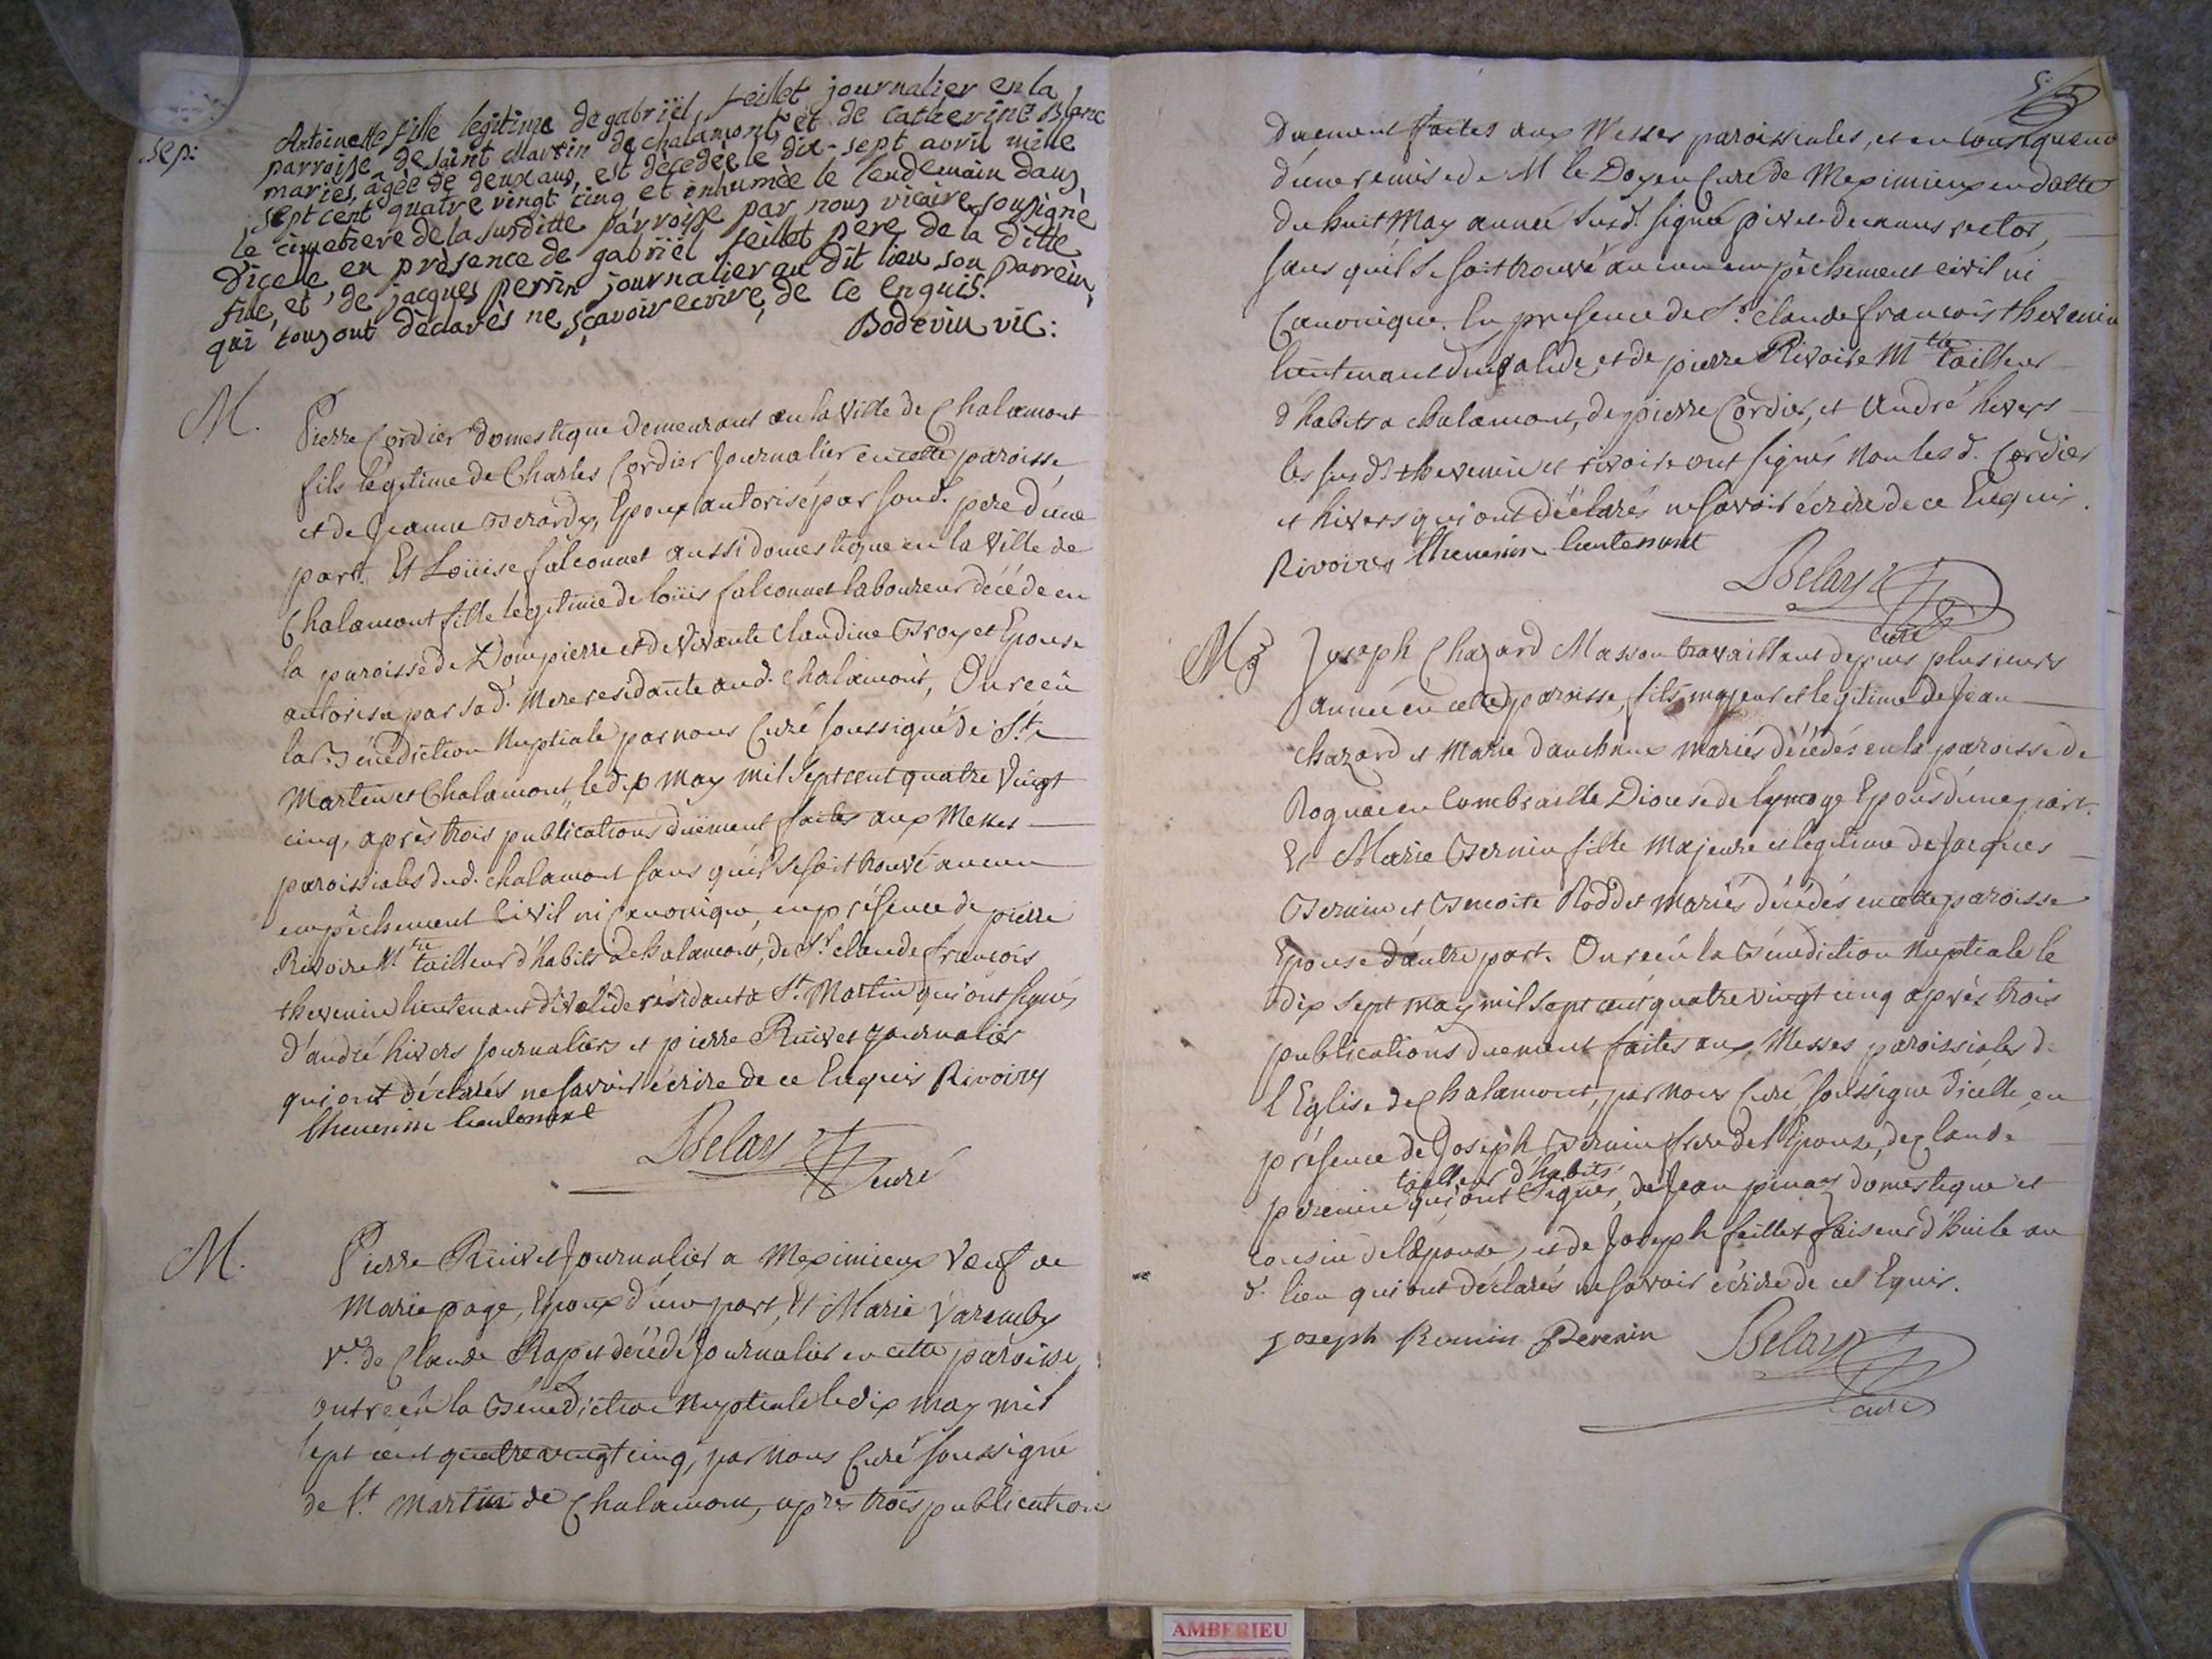 Sep:
Antoinette fille legitime de gabriël feillet journalier en la
parroisse de saint Martin de chalamont et de catherine Blanc
mariés, agée de deux ans, est décedée le dix-sept avril mille
sept cent quatre vingt cinq et inhumée le lendemain dans
le cimetiere de la susditte parroisse par nous vicaire sousigné
d'icele en présence de gabriël feillet pere de la ditte
fille, et de jacques perrin journalier au dit lieu son parrein,
qui tous ont déclarés ne sçavoir ecrire, de ce enquis.
Bodevin vic:
M.
Pierre Cordier domestique demeurant en la ville de Chalamont
fils légitime de Charles Cordier Journalier en cette paroisse
et de Jeanne Berardy, Epoux autorisé par sond. pere d'une
part. Et Loüise falconnet aussi domestique en la ville de
Chalamont fille legitime de loüis falconnet laboureur décédé en
la paroisse de Dompierre et de vivante Claudine Broy et Epouse
autorisée par sad. mere residante aud. chalamont, On reçû
la Bénédiction Nuptiale par nous Curé soussigné de St.
Martin et Chalamont, le dix may mil sept cent quatre vingt
cinq, après trois publications düement faites aux Messes
paroissiales dud. chalamont sans qu'il se soit trouvé aucun
empêchement civil ni Canonique, en présence de pierre
Rivoire Mtre tailleur d'habits à chalamont, de Sr. claude françois
thevenin lieutenant d'ivalide résidant à St. Martin qui ont signés,
d'andré hivers journaliers et pierre Ruivet journalier
qui ont déclarés ne savoir écrire de ce Enquis Rivoire
thevenin lieutenant
Belay curé
M.
Pierre Ruivet Journalier a Meximieux veuf de
Marie page, Epoux d'une part, Et Marie Varemby
ve. de Claude Rapet décédé Journalier en cette paroisse,
ont reçû la Bénédiction Nuptiale le dix may mil
sept cent quatre vingt cinq, par nous Curé soussigné
de St. Martin de Chalamont, après trois publication
5e
duement faites aux Messes paroissiales, et en consequence
d'une remise de M le Doyen Curé de Meximieux en datte
du huit May année susd. signée
sans qu'il se soit trouvé aucun empêchement civil ni
Canonique. En presence de Sr. claude françois thevenin
lieutenant d'invalide, et de pierre Rivoire Mtre tailleur
d'habits a chalamont, de pierre Cordier, et André hivers
les susds. thevenin et rivoire ont signés non les d. Cordier
et hivers qui ont déclarés ne savoir écrire de ce Enquis.
Rivoire thevenin lieutenant
Belay
curé
M
Joseph Chazard Masson travaillant depuis plusieurs
année en cette paroisse, fils majeur et legitime de Jean
chazard et Marie mariés décédés en la paroisse de
en Combraille Diocese de lymoge Epous d'une part.
Et Marie Bernin fille Majeure et legitime de Jacques
Bernin et Benoite Roddet mariés décédés en cette paroisse
Epouse d'autre part. On reçû la Bénédiction Nuptiale le
dix sept may mil sept cent quatre vingt cinq après trois
publications duement faites aux Messes paroissiales de
l'Eglise de Chalamont, par nous Curé soussigné d'icelle, en
présence de Joseph Bernin frere de l'Epouse, de claude
tailleur d'habits
perenin qui ont signés, de Jean pinay domestique et
cousin de l'épouse, et de Joseph feillet faiseur d'huile au
d. lien qui ont déclarés ne savoir écrire de cel Equis.
Joseph Bernin Perenin Belay
curé
AMBERIEU